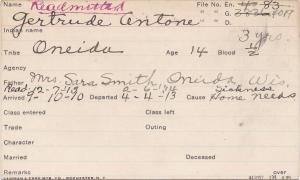 Name Readmitted File No. En. 83
Gertrude Antone
Indian name 3 yrs.
Tribe Oneida Age 14 Blood 1/2
Agency
Father Mrs. Sara Smith, Oneida, Wis.
Read. 12-7-13 Sickness
Arrived 9-10-10 Departed 4-4-13 Cause Home Needs
Class entered Class left
Trade Outing
Character
Married Deceased
Remarks over